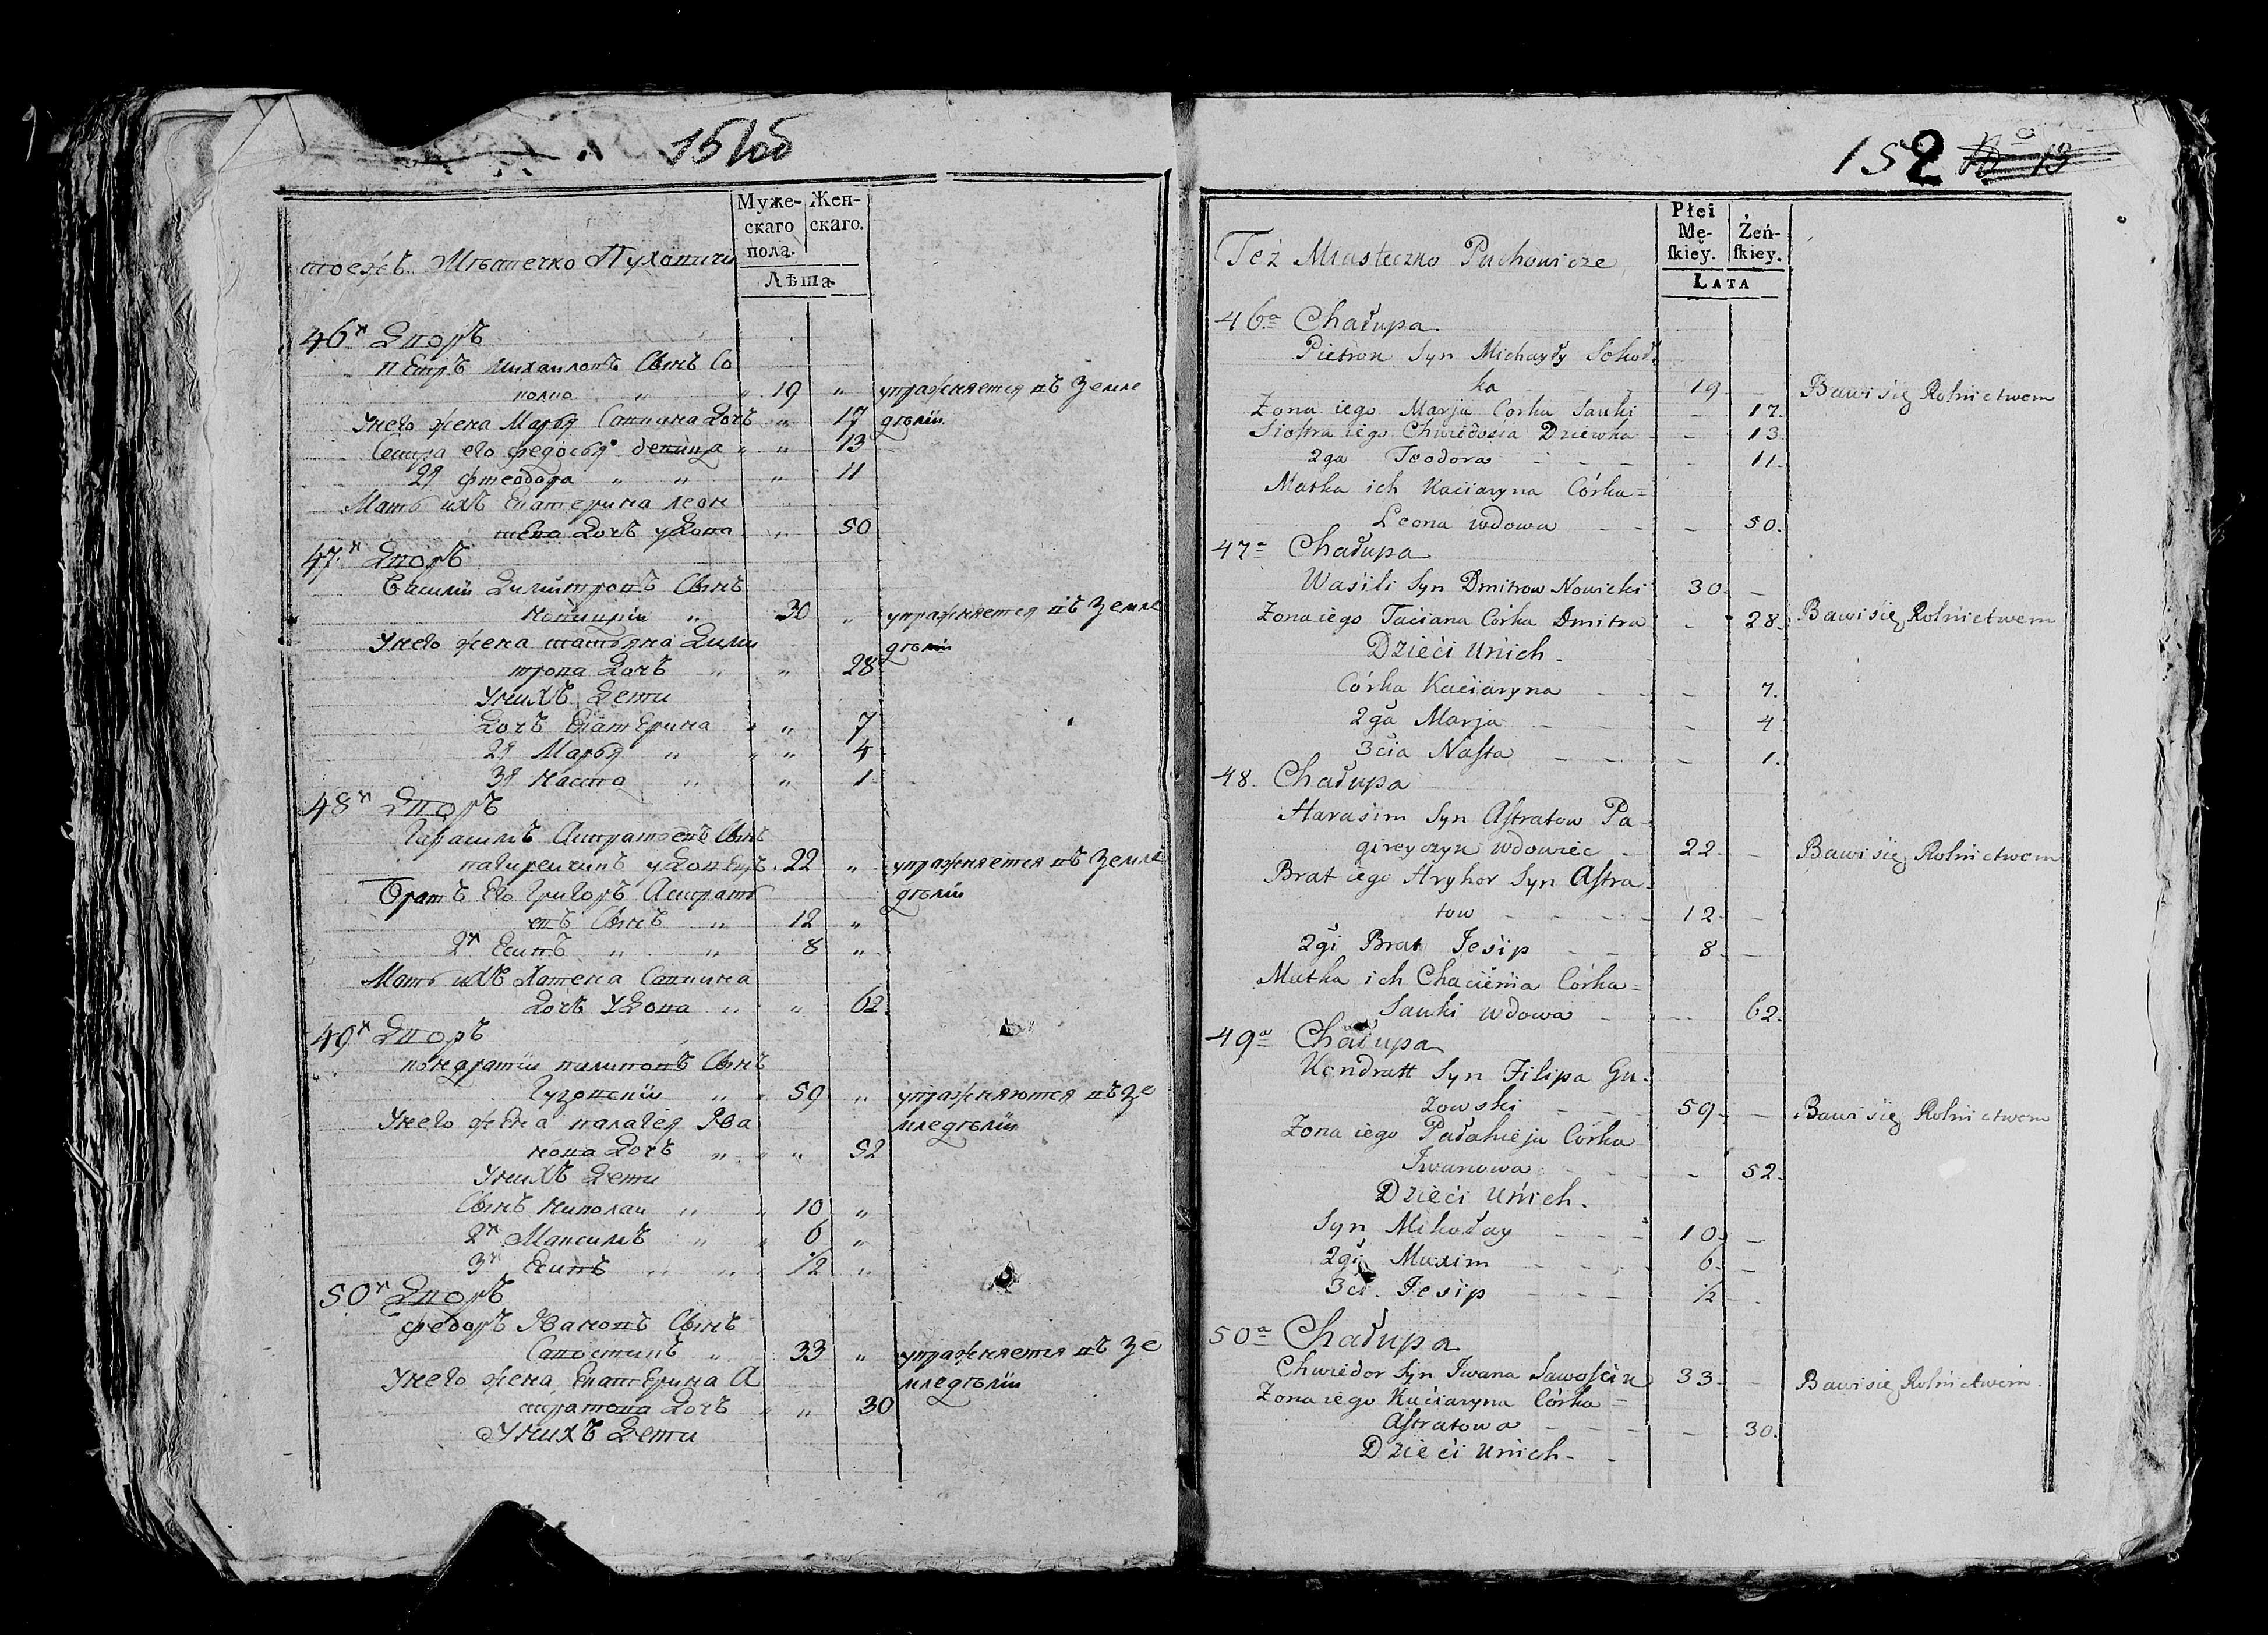 151об
Муже-
скаго
пола.
Жен-
скаго.
Лѣта
тоежъ Мѣстечко Пуховичи
46й Дворъ
Петръ Михаиловъ Сынъ Со
колко " " 19 " упражняется въ Земле
Унего жена Марья Савкина Дочъ " 17 дѣлïи
Сестра его федосья девица " " 13
2я фтеодора " " " 11
Мать ихъ Екатерина леон
тева Дочъ удова " 50
47й Дворъ
Василïи Димитровъ Сынъ
Новицкïи " 30 " упражняется въ Земле
Унего жена татьяна Дими дѣлïи
трова Дочъ " " 28
Унихъ Дети
Дочъ Екатерина " " 7
2я Марья " " " 4
3я Наста " " 1
48й Дворъ
Гарасимъ Астратоевъ Сынъ
пагиреичинъ удовецъ 22 " упражняется въ Земле
Братъ Его Григоръ Астрать дѣлïи
евъ Сынъ " 12 "
2й Есипъ " " 8 "
Мать ихъ Хатена Савкина
Дочъ Удова " " 62
49й Дворъ
кондратïи пилиповъ Сынъ
Гузовскïи " " 59 " упражняются въ Зе
Унего жена палагея Ива мледѣлïи
нова Дочъ " " " 52
Унихъ Дети
Сынъ Николаи " " 10 "
2й Максимъ " " 6 "
3й Есипъ " " 1/2 "
50й Дворъ
федоръ Ивановъ Сынъ
Савостинъ " 33 " упражняется въ Зе
Унего жена Екатерина А мледѣлïи
стратова Дочъ " " 30
Унихъ Дети
152
Płci
Mę-
ſkieỹ.
Żeń-
ſkiey.
LATA
Też Miasteczko Puchowicze
46a Chałupa
Pietron Syn Michayły Sokoł.
ka 19 Bawi się Rolnictwem
Zona iego Marja Corka Sauki 17
Siostra iego Chwiedosia Dziewka 13
2ga Teodora 11
Matka ich Kaciaryna Córka=
Leona wdowa 50.
47a Chałupa
Wasili Syn Dmitrow Nowicki 30
Zona iego Taciana Córka Dmitra 28 Bawi się Rolnictwem
Dzieci Unich
Córka Kaciaryna 7.
2ga Marja 4
3cia Nasta 1.
48. Chałupa
Harasim Syn Astratow Pa
gireyczyn wdowiec 22 Bawi się Rolnictwem
Brat iego Hryhor Syn Astra
tow 12
2gi Brat Jesip 8
Matka ich Chacienia Córka=
Sauki wdowa 62.
49a Chałupa
Kondratt Syn Filipa Gu.
zowski 59 Bawi się Rolnictwem
Zona iego Pałahieja Córka
Iwanowa 52.
Dzieci Unich.
Syn Mikołay 10
2gi Maxim 6
3ci Jesip 1/2
50a Chałupa
Chwiedor Syn Iwana Sawościn 33 Bawi się Rolnictwem
Zona iego Kaciaryna Córka=
Astratowa 30.
Dzieci Unich